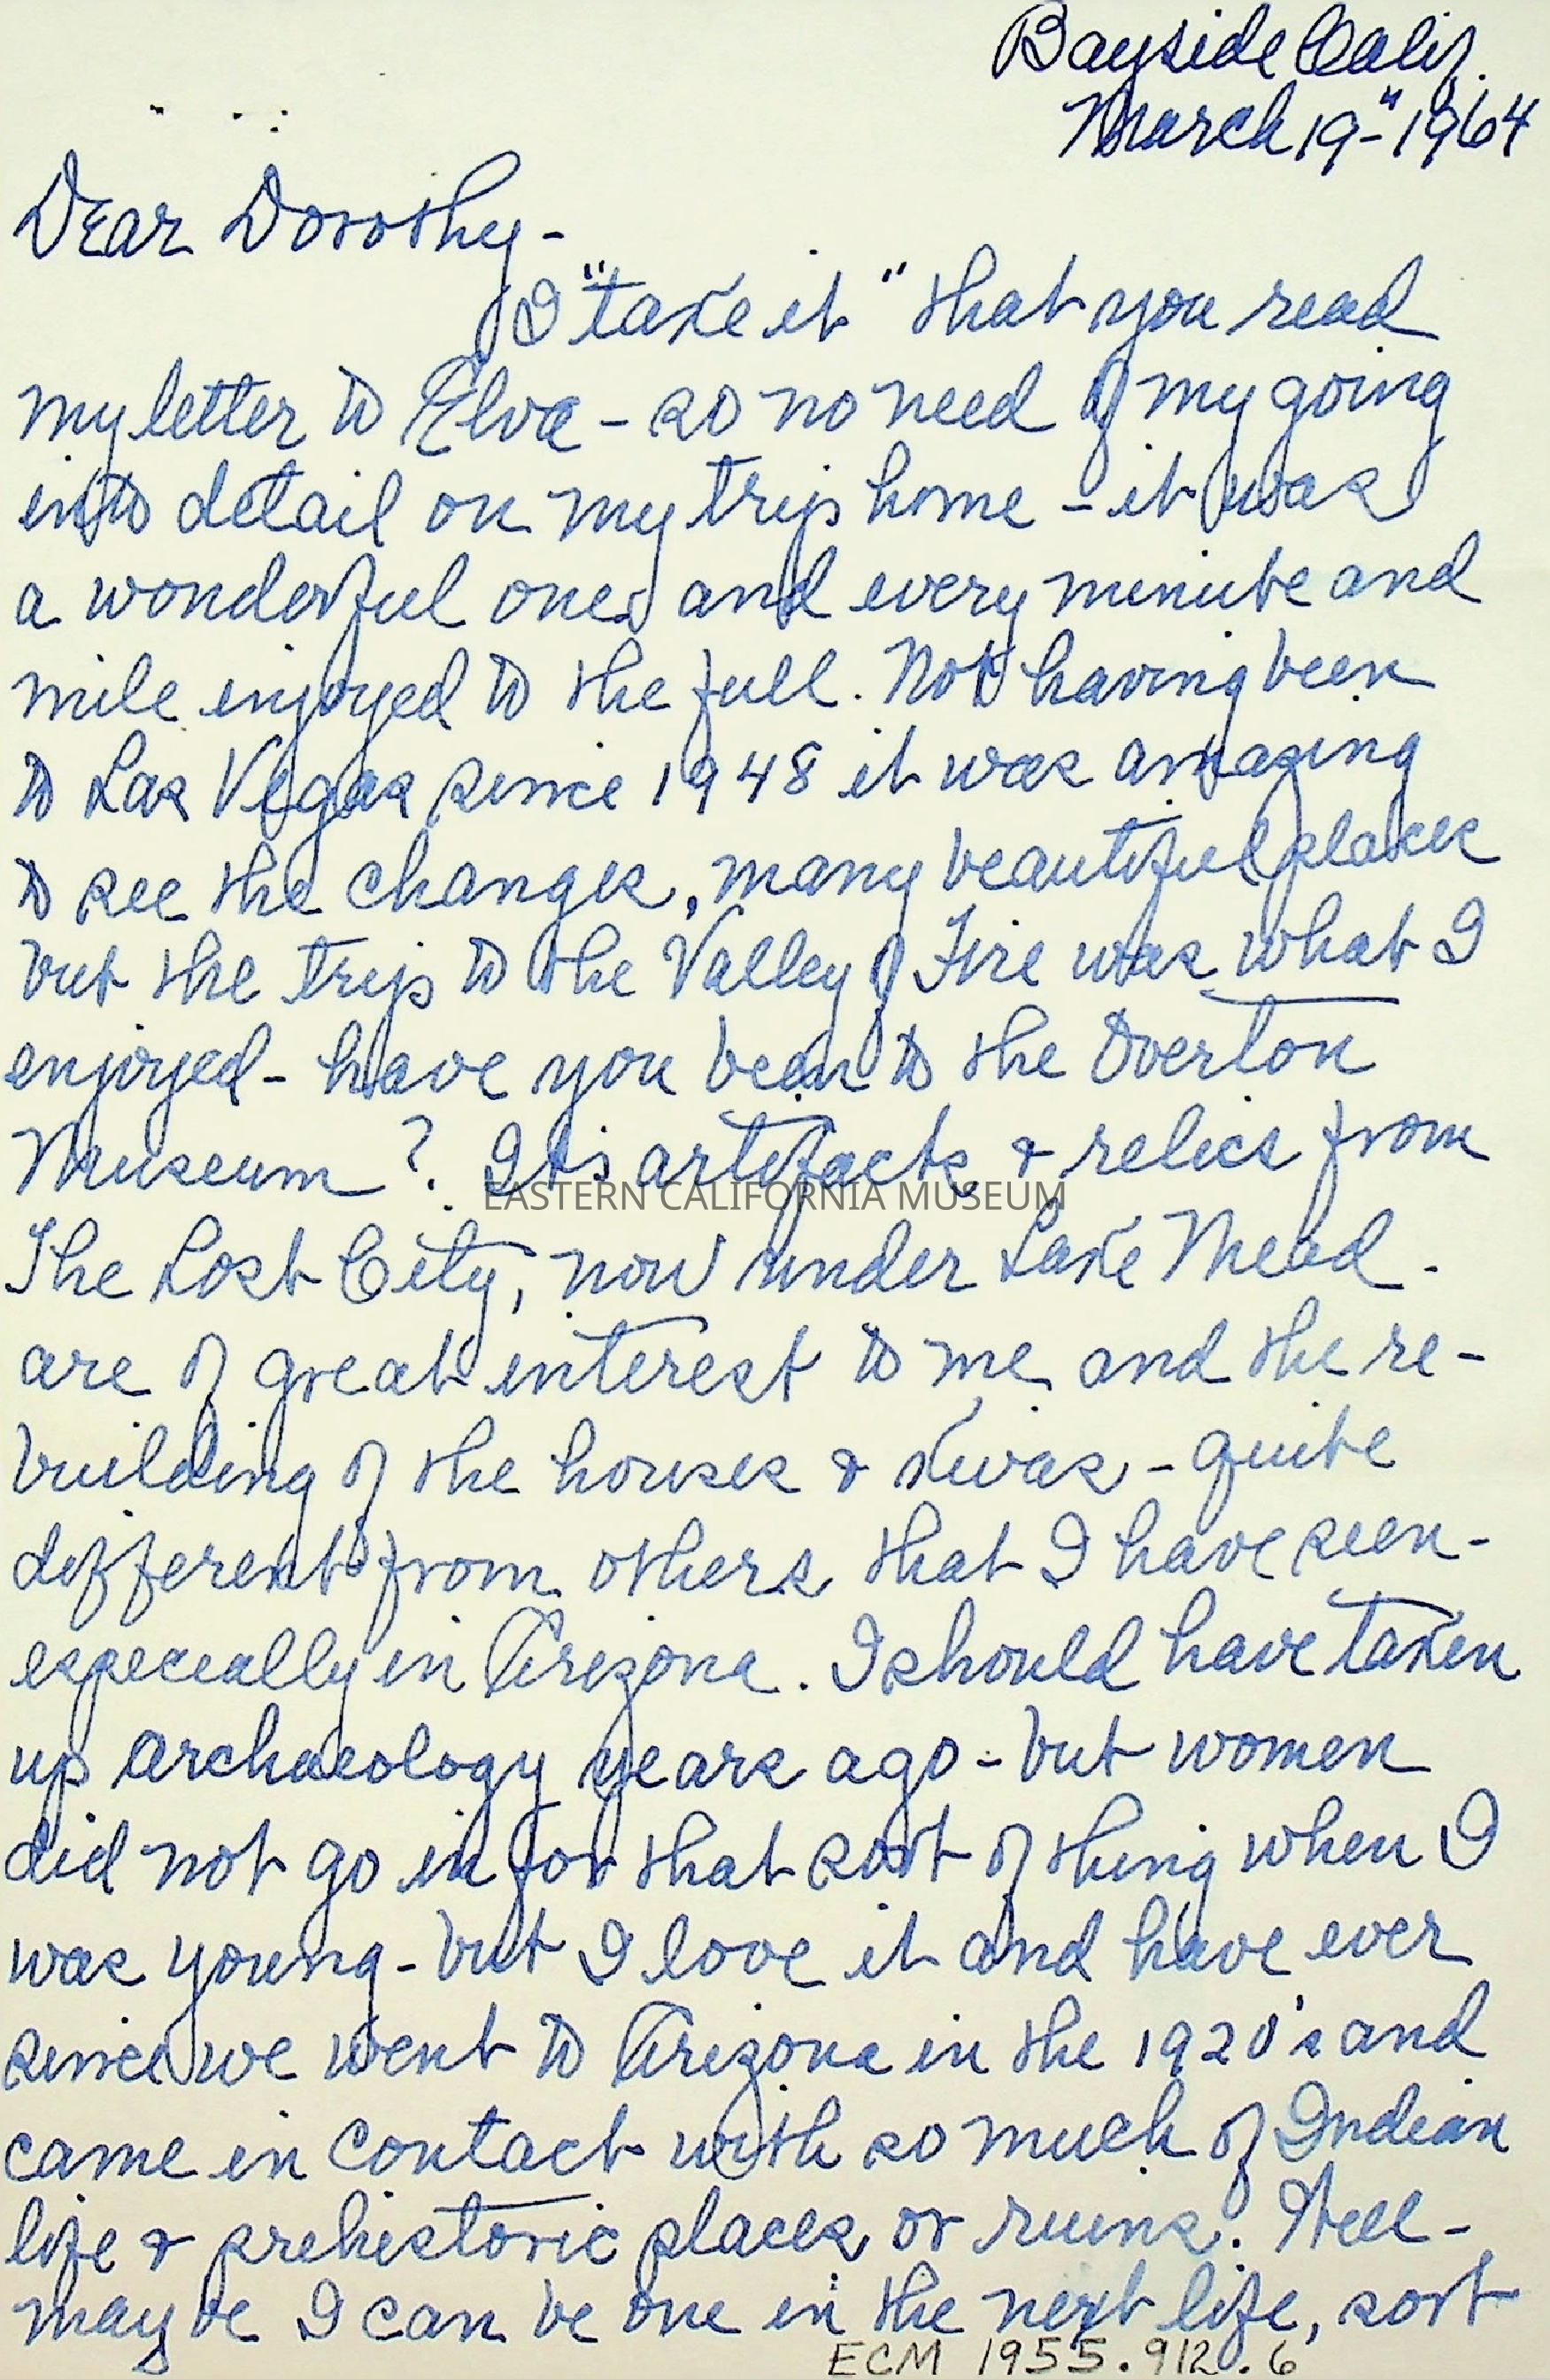 Bayside Calif.
March 19-" 1964
Dear Dorothy-
I "take it" that you read
my letter to Elva - so no need of my going
into detail on my trip home - it was
a wonderful one, and every minute and
mile enjoyed to the full. Not having been
to Las Vegas since 1948 it was amazing
to see the changes, many beautiful places
but the trip to the Valley of Fire was what I
enjoyed - have you been to the Overton
Museum? Its artifacts & relics from
EASTERN CALIFORNIA MUSEUM
The Lost City, now under Lake Mead.
are of great interest to me and the re-
building of the houses & Kivas - quite
different from others that I have seen -
especially in Arizona. I should have taken
up archaeology years ago - but women
did not go in for that sort of thing when I
was young - but I love it and have ever
since we went to Arizona in the 1920's and
came in contact with so much of Indian
life & prehistoric places or ruins. Well -
maybe I can be one in the next life, sort
ECM 1955.912.6